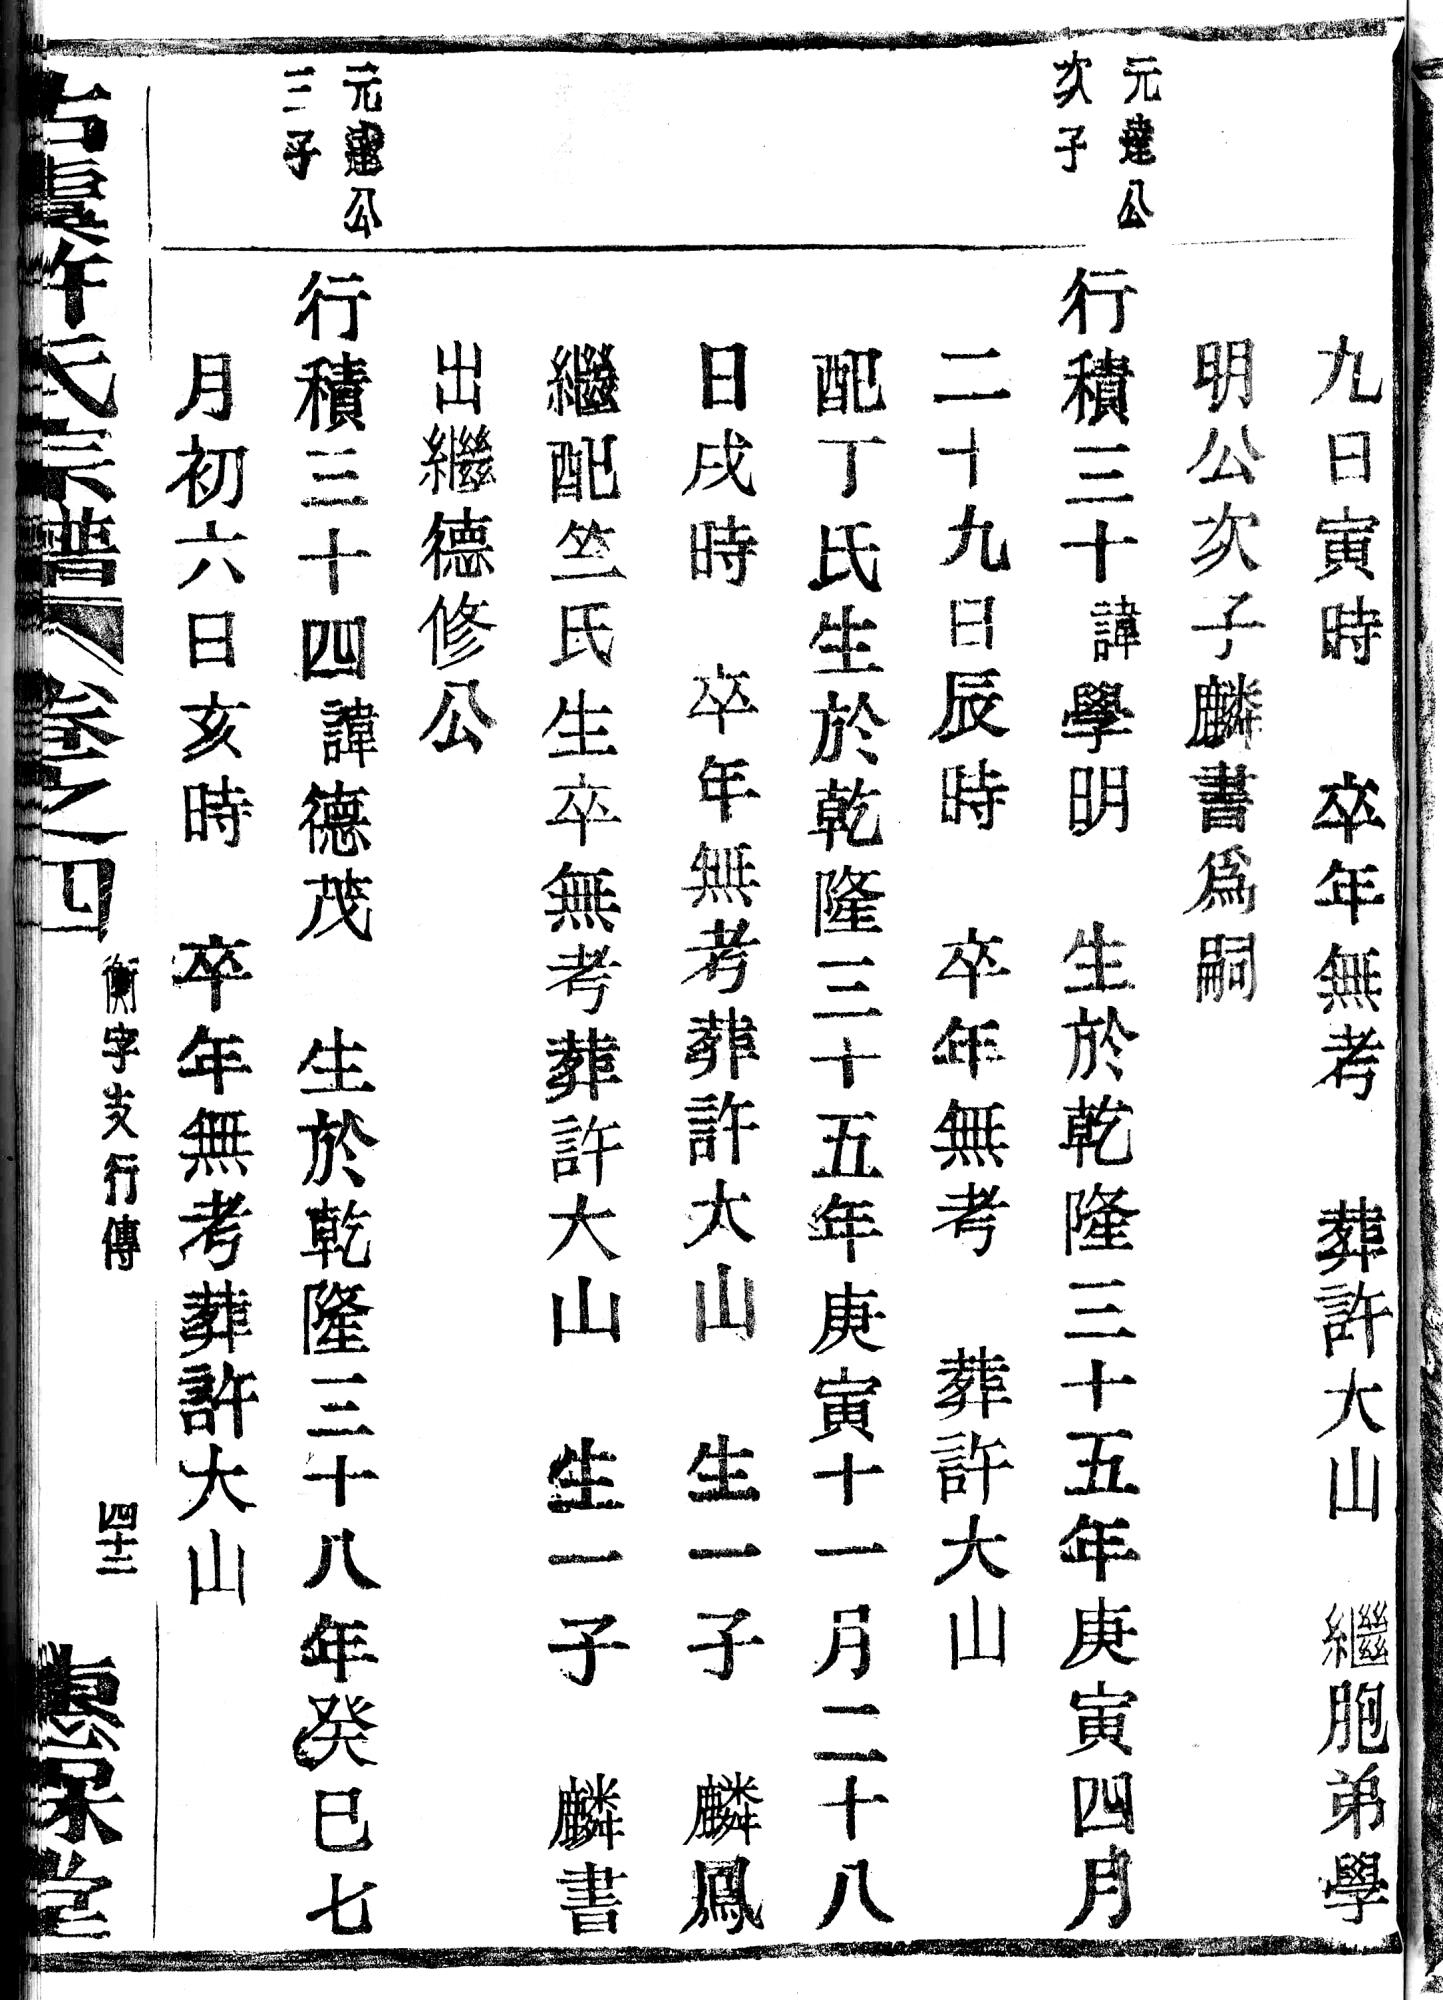 九日寅時　卒年無考　葬許大山　繼胞弟學
明公次子麟書爲嗣
元達公
次子
行積三十諱學明　生於乾隆三十五年庚寅四月
二十九日辰時　卒年無考　葬許大山
配丁氏生於乾隆三十五年庚寅十一月二十八
日戌時　卒年無考葬許大山　生一子　麟鳳
繼配竺氏生卒無考葬許大山　生一子　麟書
出繼德修公
元達公
三子
行積三十四諱德茂　生於乾隆三十八年癸巳七
月初六日亥時　卒年無考葬許大山
古虞許氏宗譜　卷之四
衡字支行傳
四十三
堂